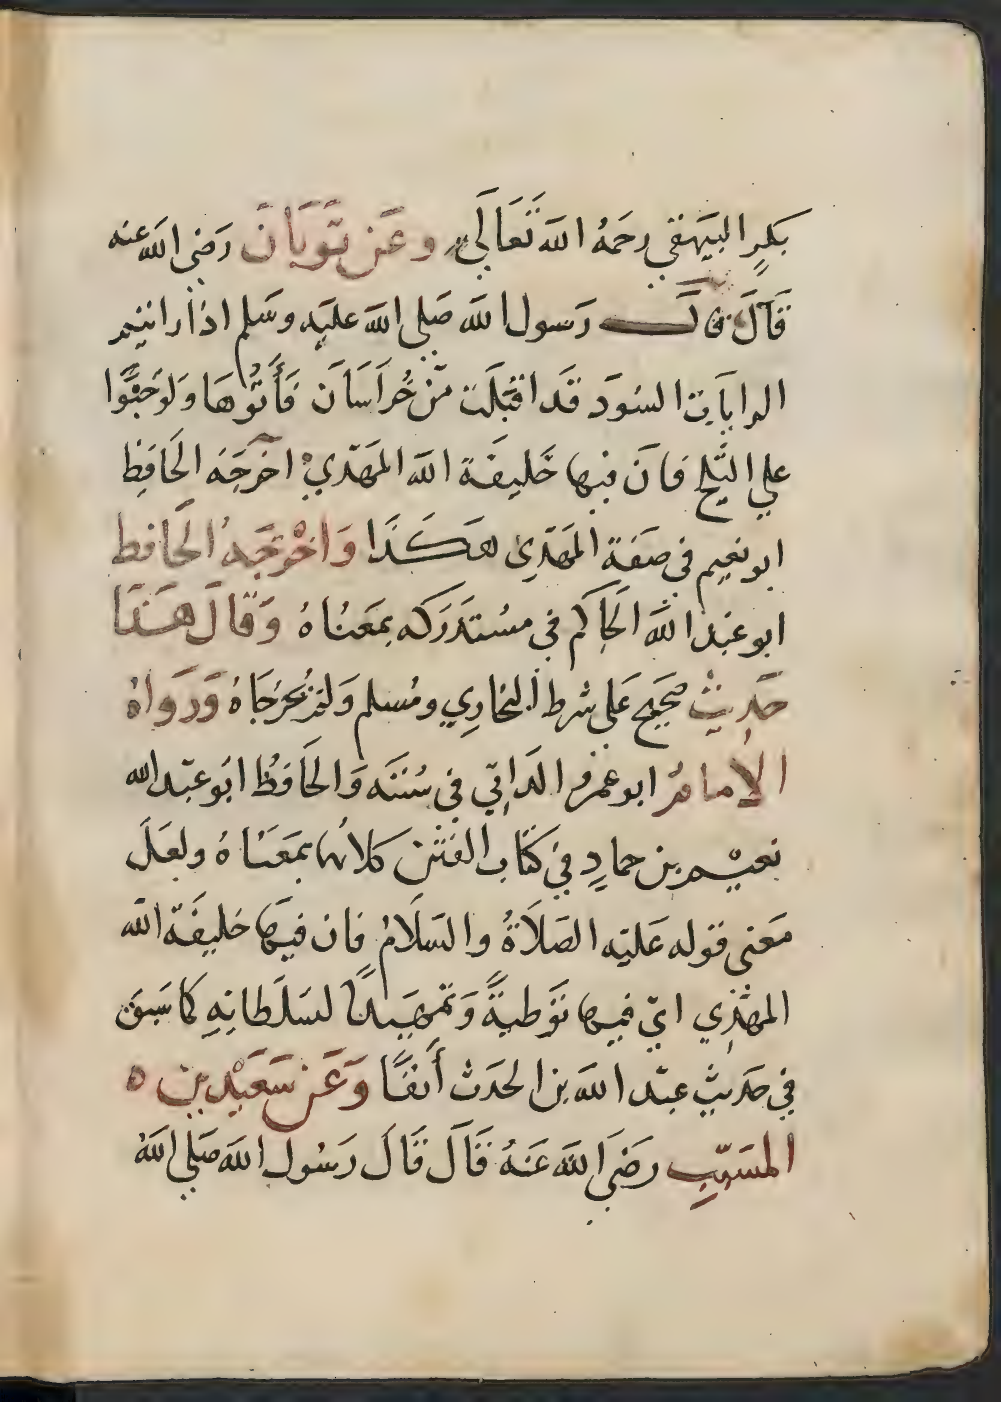 بكرٍ البيهقي رحمَهُ الله تَعَالَى وعَن ثَوبَانَ رَضي الله عنه
قَالَ قال رَسول الله صَلى الله عليَه وسَلم اذا رايتم
الرايات السُودَ قَد اقبَلَت مِنْ خُراسَانَ فَأتُوهَا وَلو حَبْوًا
علي الثَلج فان فيها خَليفَة الله المَهْدي اخرجَه الحَافِظ
ابو نعيم في صفة المَهْدِي هَكَذا وَاخْرَجَهُ الحَافظ
ابو عَبْد الله الحَاكم في مسُتَدرَكه بمَعنَاهُ وَقالَ هَذا
حَديثْ صحَيح عَلى شرط البخارِي ومُسلم وَلم يُخرجَاهُ وَرَوَاهُ
الإمامُ ابو عمرو الدَاني في سُنَنه وَالحَافظُ ابَو عبْد الله
نعيْم بن حمادٍ في كتَاب الفتَن كلاهُما بمَعَناهُ ولعَلَ
مَعنى قوله عَليَه الصَلاَةُ والسَلاَمُ فان فيهَا خليفَة الله
المهْدِي اي فيها تَوَطيةً وَتمَهيدًا لسَلطَانِهِ كما سَبق
في حَديثِ عبْد الله بن الحَرث أنفًا وَعَن سَعَيْد بن ه
المسَيّبِ رَضيَ الله عَنهُ قَالَ قَالَ رَسُول الله صَلي اللهُ